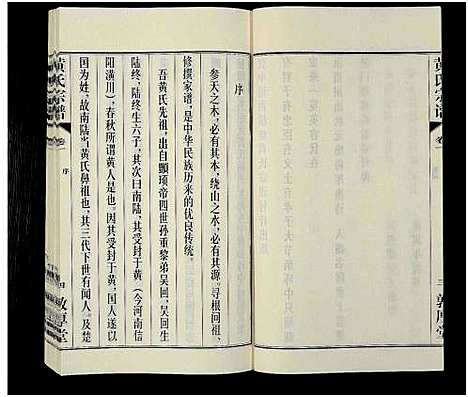 黄氏宗谱
卷一
三
敦厚堂
序
参天之木，必有其本，绕山之水，必有其源。寻根回祖、
修撰家谱，是中华民族历来的优良传统。
吾黄氏先祖，出自颛顼帝四世孙重黎弟吴回，吴回生
陆终，陆终生六子，其次曰南陆，其受封于黄（今河南信
阳潢川），春秋所谓黄人是也，因其受封于黄，国人遂以
国为姓，故南陆当黄氏鼻祖也，其三代下世有闻人，及楚
黄氏宗谱
卷一
序
敦厚堂